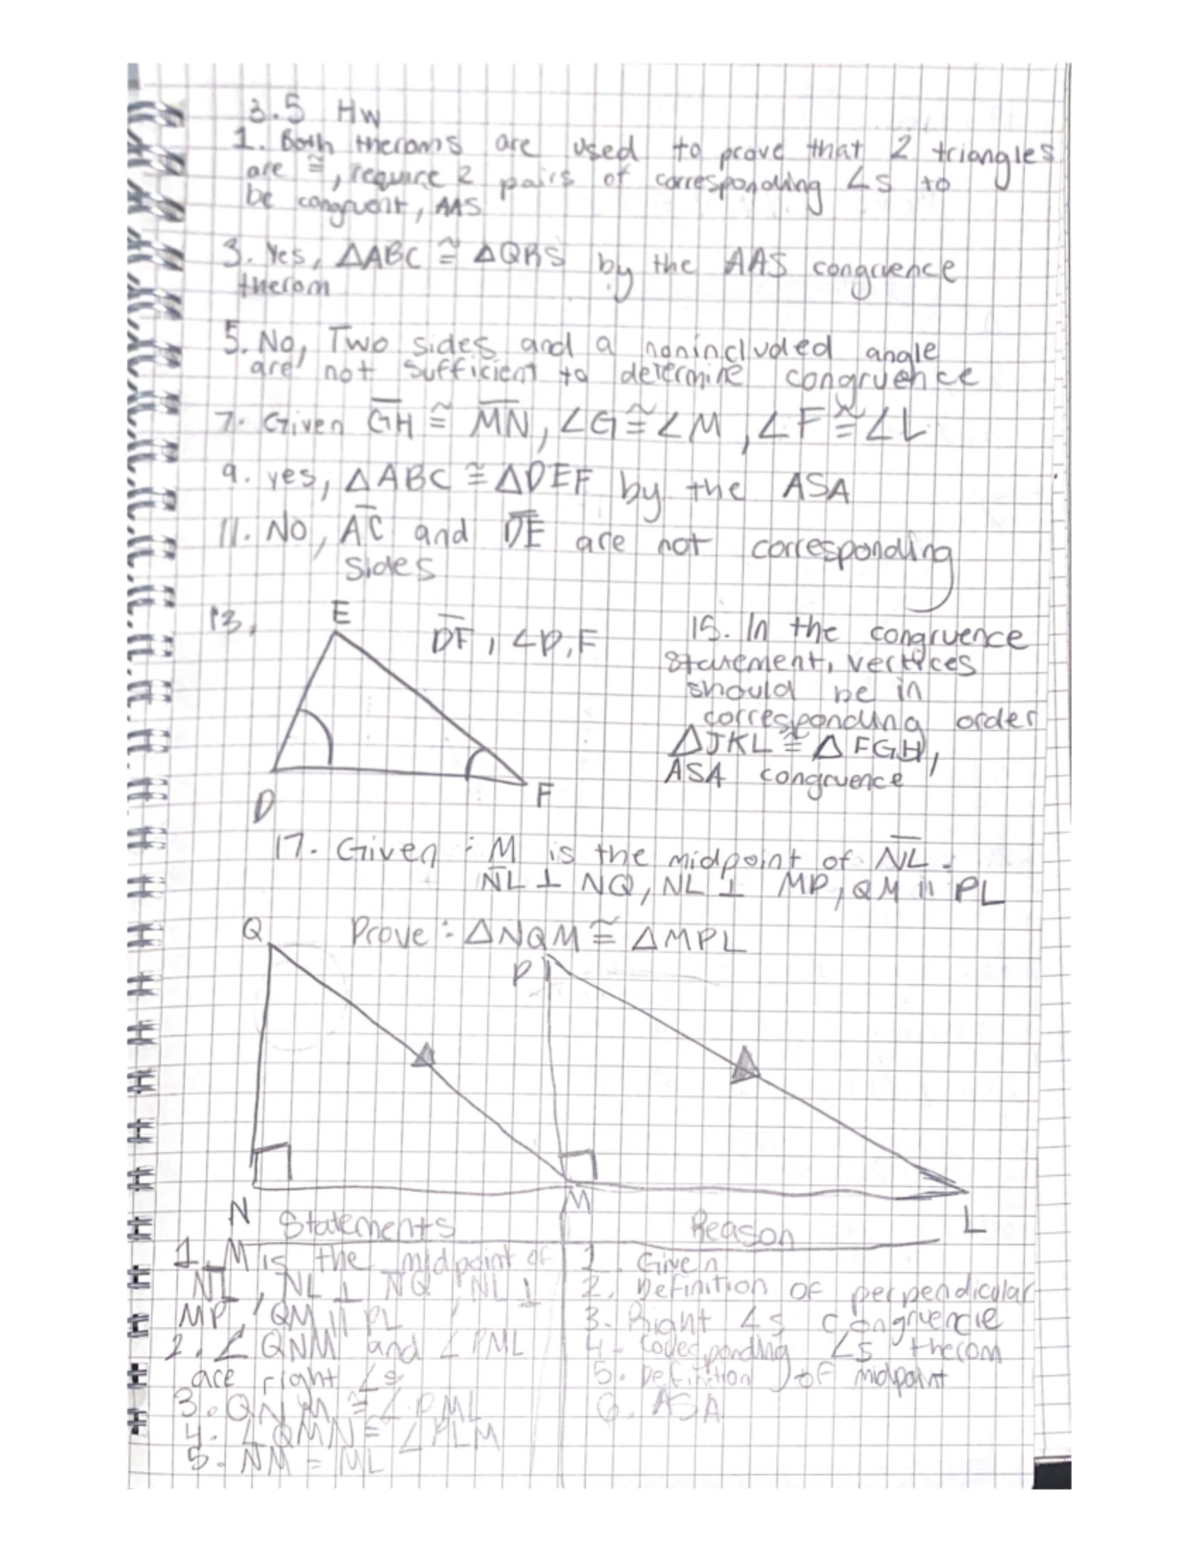 3.5 Hw
1. Both theroms are used to prove that 2 triangles
are ≅, require 2 pairs of corresponding ∠s to
be congruent, AAS
3. Yes, △ABC ≅ △QRS by the AAS congruence
therom
5. No, Two sides and a nonincluded angle
are not sufficient to determine congruence
7. Given GH ≅ MN, ∠G ≅ ∠M, ∠F ≅ ∠L
9. yes, △ABC ≅ △DEF by the ASA
11. No, AC and DE are not corresponding
sides
13.
E
DF, ∠D, F
D
F
15. In the congruence
statement, vertices
should be in
corresponding order
△JKL ≅ △FGH,
ASA congruence
17. Given : M is the midpoint of NL.
NL ⊥ NQ, NL ⊥ MP, QM || PL
Prove : △NQM ≅ △MPL
Q
P
N
M
L
Statements
1. M is the midpoint of
NL, NL ⊥ NQ, NL ⊥
MP, QM || PL
2. ∠QNM and ∠PML
are right ∠s
3. QNM ≅ ∠PML
4. ∠QMN ≅ ∠PLM
5. NM = ML
Reason
1. Given
2. Definition of perpendicular
3. Right ∠s congruencie
4. Coresponding ∠s therom
5. Definition of midpoint
6. ASA